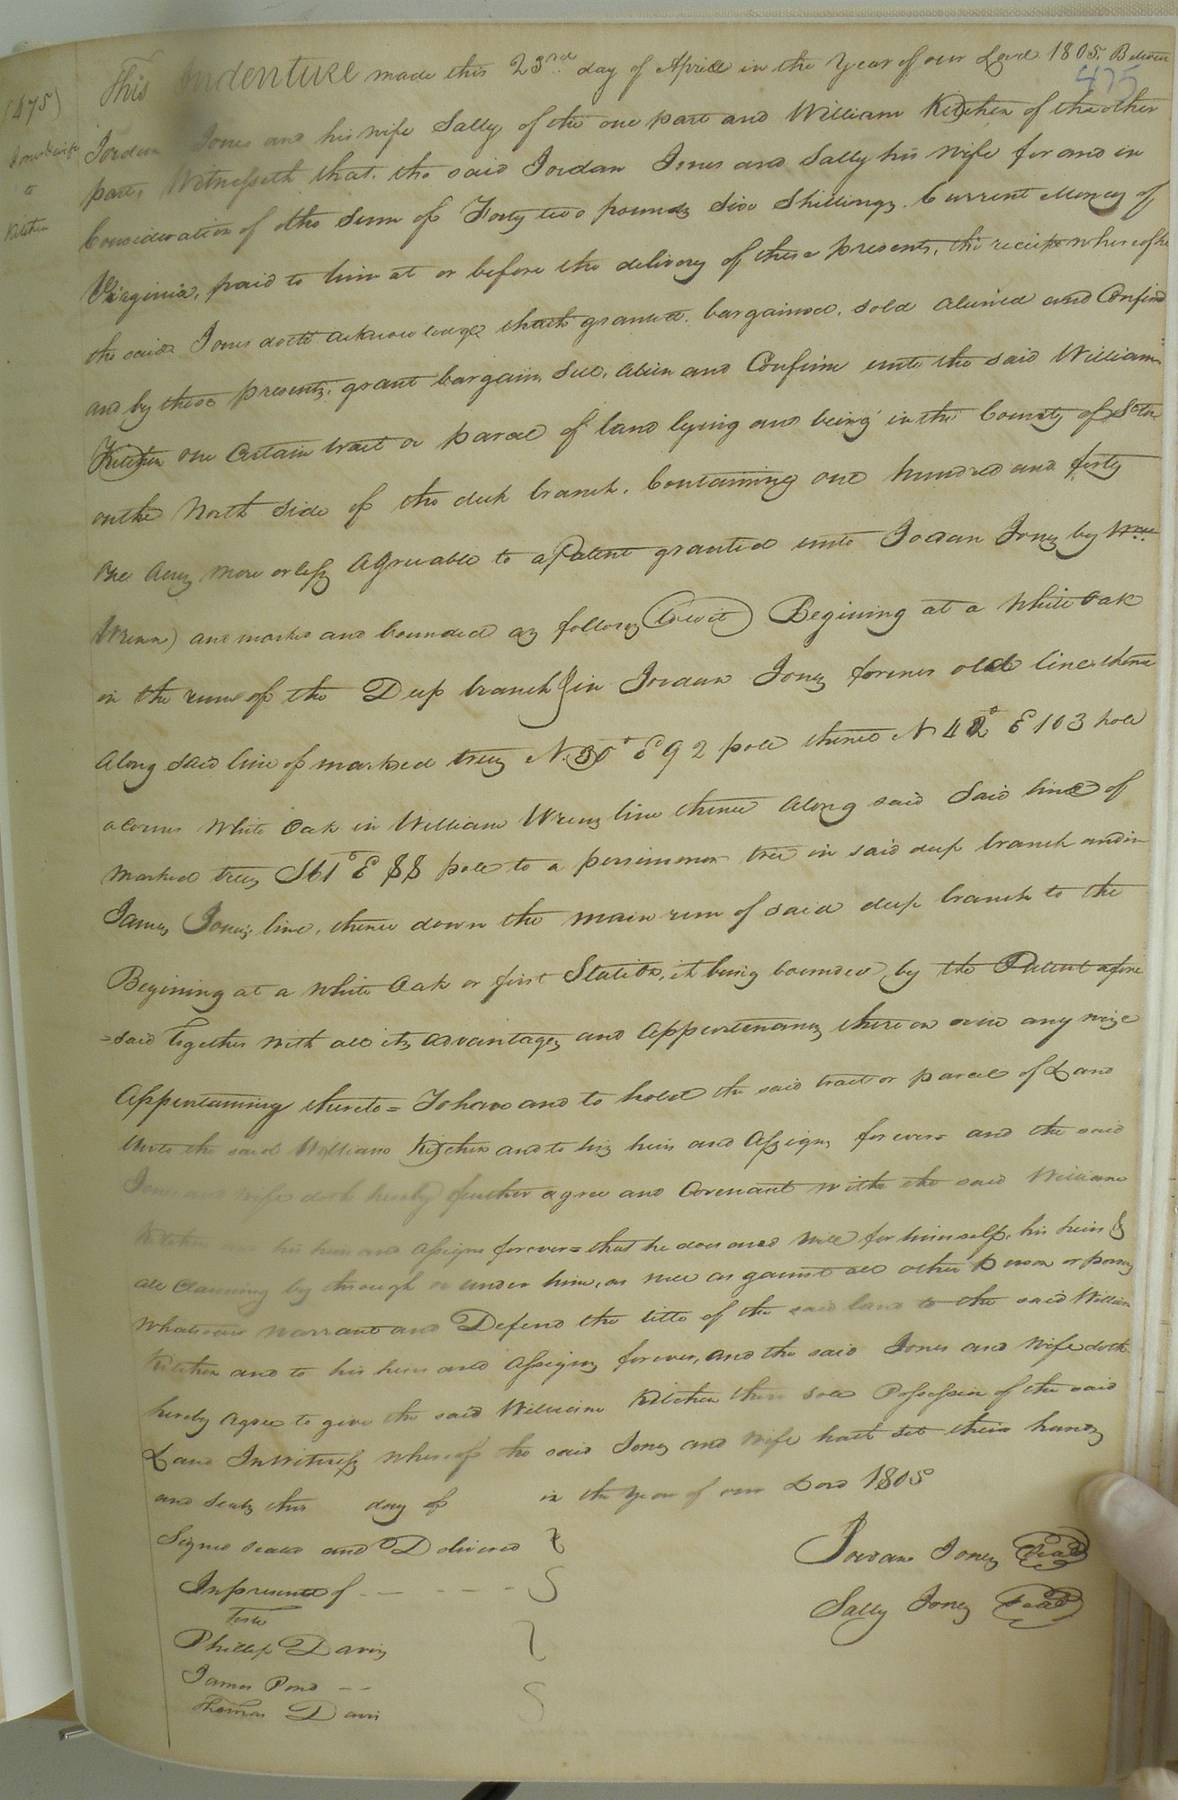 This Indenture made this 23rd day of Aprill in the Year of our Lord 1805. Between
475
(475)
Jones & wife
to
Kitchen
Jordan Jones and his wife Sally of the one part and William Kitchen of the other
part, Witnesseth that, the said Jordan Jones and Sally his wife for and in
Consideration of the Sum of Forty two pounds Six Shillings Current Money of
Virginia, paid to him at or before the delivery of these presents, the reciept whereof he
the said Jones doth acknowledge hath granted, bargained, sold aliened and Confirmd
and by these presents, grant bargain, Sell, alien and Confirm unto the said William
Kitchen one Certain tract or parcel of land lying and being in the County of Soth
on the North Side of the deek branch, Containing one hundred and forty
One Acres more or less Agreeable to a Patent granted unto Jordan Jones by Wm
Wrenn) and marked and bounded as follows (towit) Begining at a White Oak
in the run of the Deep branch & in Jordan Jones forener old line thence
Along said line of marked trees N. 30° E 92 pole thence N 42° E 103 pole
a corner White Oak in William Wrens line thence Along said Said line of
marked trees S61° E 88 pole to a persimmon tree in said deep branch and in
James Jones line, thence down the main run of said deep branch to the
Begining at a White Oak or first Station, it being bounded by the Patent afore
=said Together with all its advantages and Appurtenances there on or in any wize
Appertaining thereto = To have and to hold the said tract or parcel of Land
Unto the said William Kitchen and to his heirs and Assigns forever = and the said
Jones and Wife doth hereby further agree and Covenant with the said William
Kitchen and his heirs and Assigns forever = that he does and Will for himself, his heirs &
all Claiming by through or under him, as well as against all other Person or persons
Whatsoever Warrant and Defend the title of the said land to the said William
Kitchen and to his heirs and Assigns forever, and the said Jones and Wife doth
hereby Agree to give the said William Kitchen there Sole Possession of the said
Land In Witness Whereof the said Jones and Wife hath set their hands
and Seals this day of in the Year of our Lord 1805
Signed sealed and Delivered
In presence of - - - - -
Teste
Jordan Jones Seal
Sally Jones Seal
Phillip Davis
James Pond --
Thomas Davis